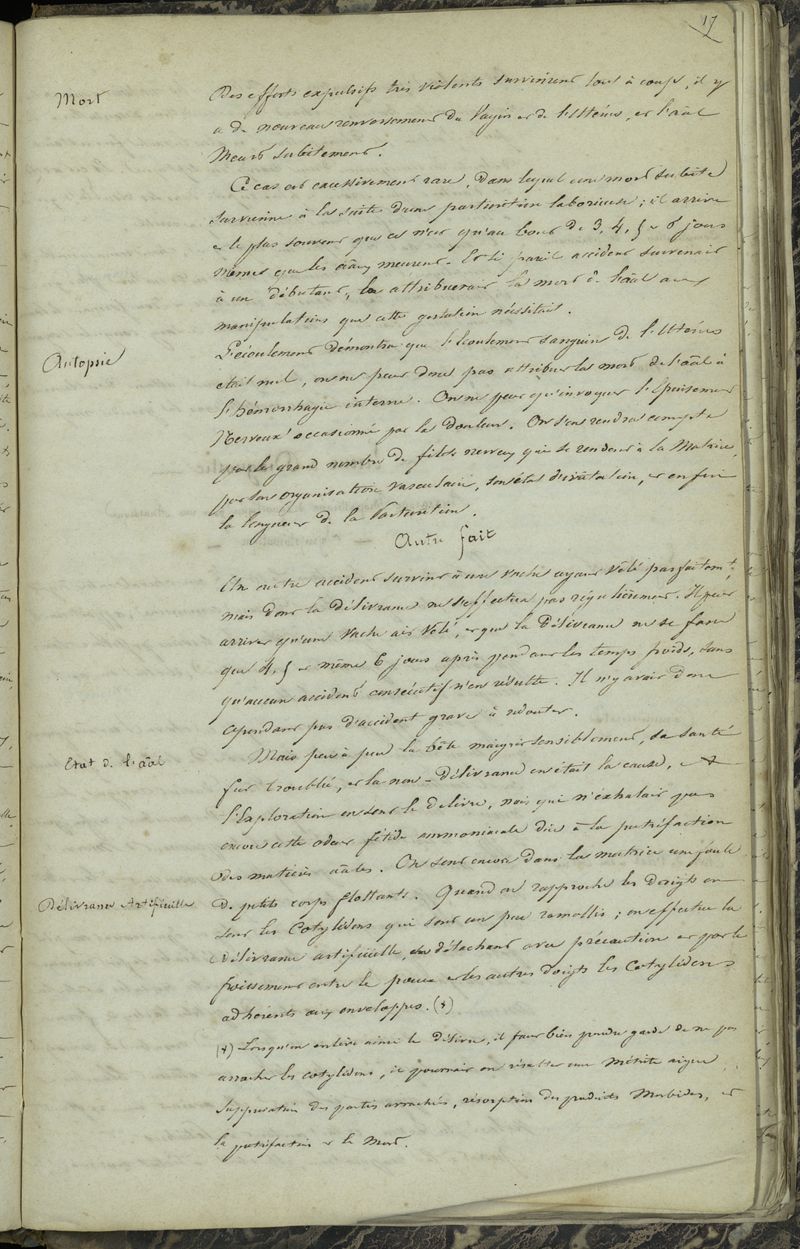 17
Mort
Des efforts expulsifs très violents survinrent tout à coup, il y
a de nouveau renversement du Vagin et de l'Utérus, et l'aāl
Meurt subitement.
Ce cas est excessivement rare, dans lequel une mort subite
survienne à la suite d'une parturition laborieuse ; il arrive
le plus souvent que ce n'est qu'au bout de 3, 4, 5 et 6 jours
mêmes que les aāux meurent. Et si pareil accident survenait
à un débutant, attribuerait la mort de l'aāl aux
manipulations que cette gestation nécessitait.
Autopsie
L'écoulement démontra que l'Ecoulement sanguin de l'Utérus
était nul, on ne peut donc pas attribuer la mort de l'aāl à
l'hémorrhagie interne. On ne peut qu'invoquer l'épuisement
Nerveux occasionné par la douleur. On s'en rendra compte
par le grand nombre de filets nerveux qui se rendent à la Matrice,
par son organisation vasculaire, son état d'irritation, et enfin
la longueur de la Parturition.
Autre fait
Un autre accident survint à une Vache ayant Vêlé parfaitemt.
mais dont la délivrance ne s'effectua pas régulièrement. Il peut
arriver qu'une Vache ait Vêlé, et que la Délivrance ne se fasse
que 4, 5 et même 6 jours après pendant les temps froids, sans
qu'aucun accident consécutif n'en résulte. Il n'y avait donc
cependant pas d'accident grave à redouter.
Etat de l'aāl
Mais peu à peu la bête maigrit sensiblement, sa santé
fut troublée, et la non-délivrance en était la cause, à
l'Exploration on sent le delivre, mais qui n'exhalait pas
encore cette odeur fétide ammoniacale due à la putréfaction
des matières aāles. On sent encore dans la matrice une foule
Délivrance Artificielle
De petits corps flottants. Quand on rapproche les doigts on
sent les Cotylédons qui sont un peu ramollis ; on effectue la
délivrance artificielle, en détachant avec précaution et par le
froissement entre le pouce et les autres doigts les Cotylédons
adhérents aux enveloppes. (*)
(*) Lorsqu'on enlève ainsi le délivre, il faut bien prendre garde de ne pas
arracher les cotylédons, il pourrait en résulter une Métrite aigue
suppuration des parties arrachées, résorption des produits Morbides, et
la putréfaction et la Mort.